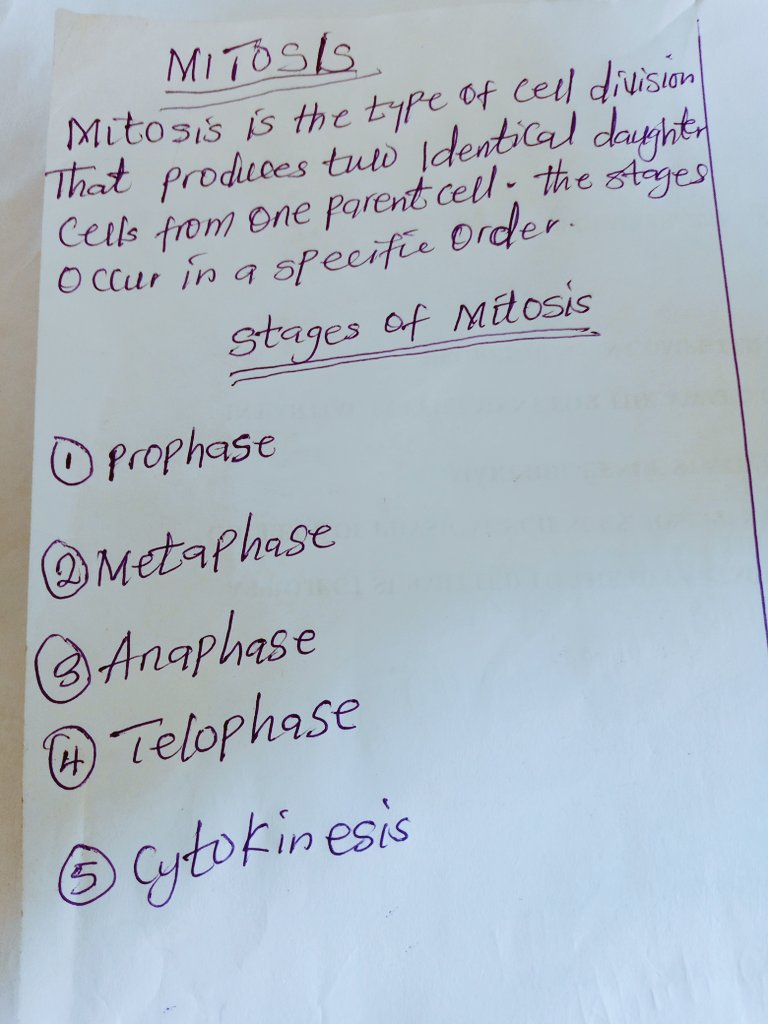 MITOSIS
Mitosis is the type of cell division
That produces two Identical daughter
Cells from One parent cell. the stages
Occur in a specific Order.
Stages of Mitosis
① Prophase
② Metaphase
③ Anaphase
④ Telophase
⑤ Cytokinesis